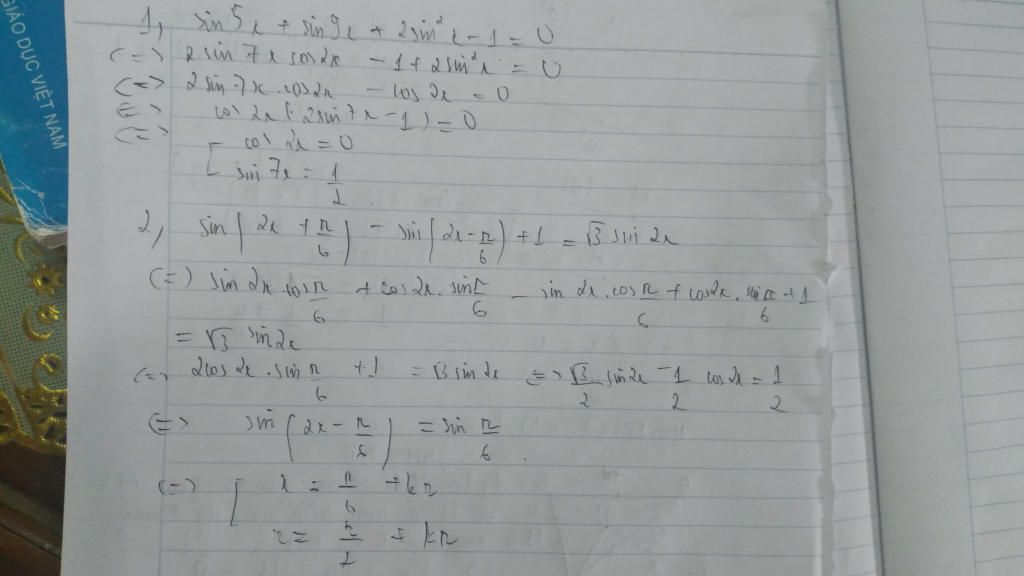 GIÁO DỤC VIỆT NAM
1, sin 5x + sin 9x + 2sin² x - 1 = 0
(=) 2 sin 7x cos2x - 1 + 2sin²x = 0
<=> 2 sin 7x. cos2x - cos 2x = 0
<=> cos 2x (2sin7x - 1) = 0
<=> [ cos 2x = 0
sin 7x = 1/2 .
2, sin (2x + π/6) - sin (2x - π/6) + 1 = √3 sin 2x
(=) sin 2x. cos π/6 + cos 2x. sin π/6 - sin 2x. cos π/6 + cos2x. sin π/6 + 1
= √3 sin2x
<=> 2cos 2x. sin π/6 + 1 = √3 sin 2x <=> √3/2 sin2x - 1/2 cos2x = 1/2
<=> sin (2x - π/6) = sin π/6 .
<=> [ x = π/6 + kπ
x = π/2 + kπ